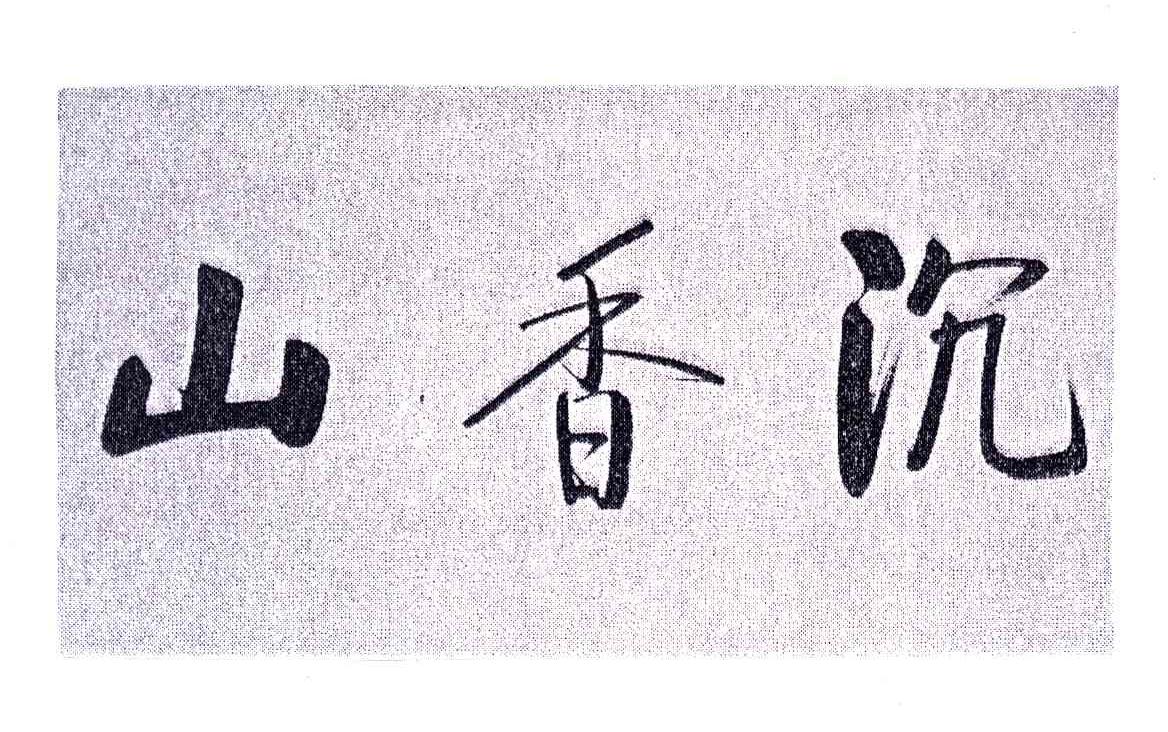 沉香山